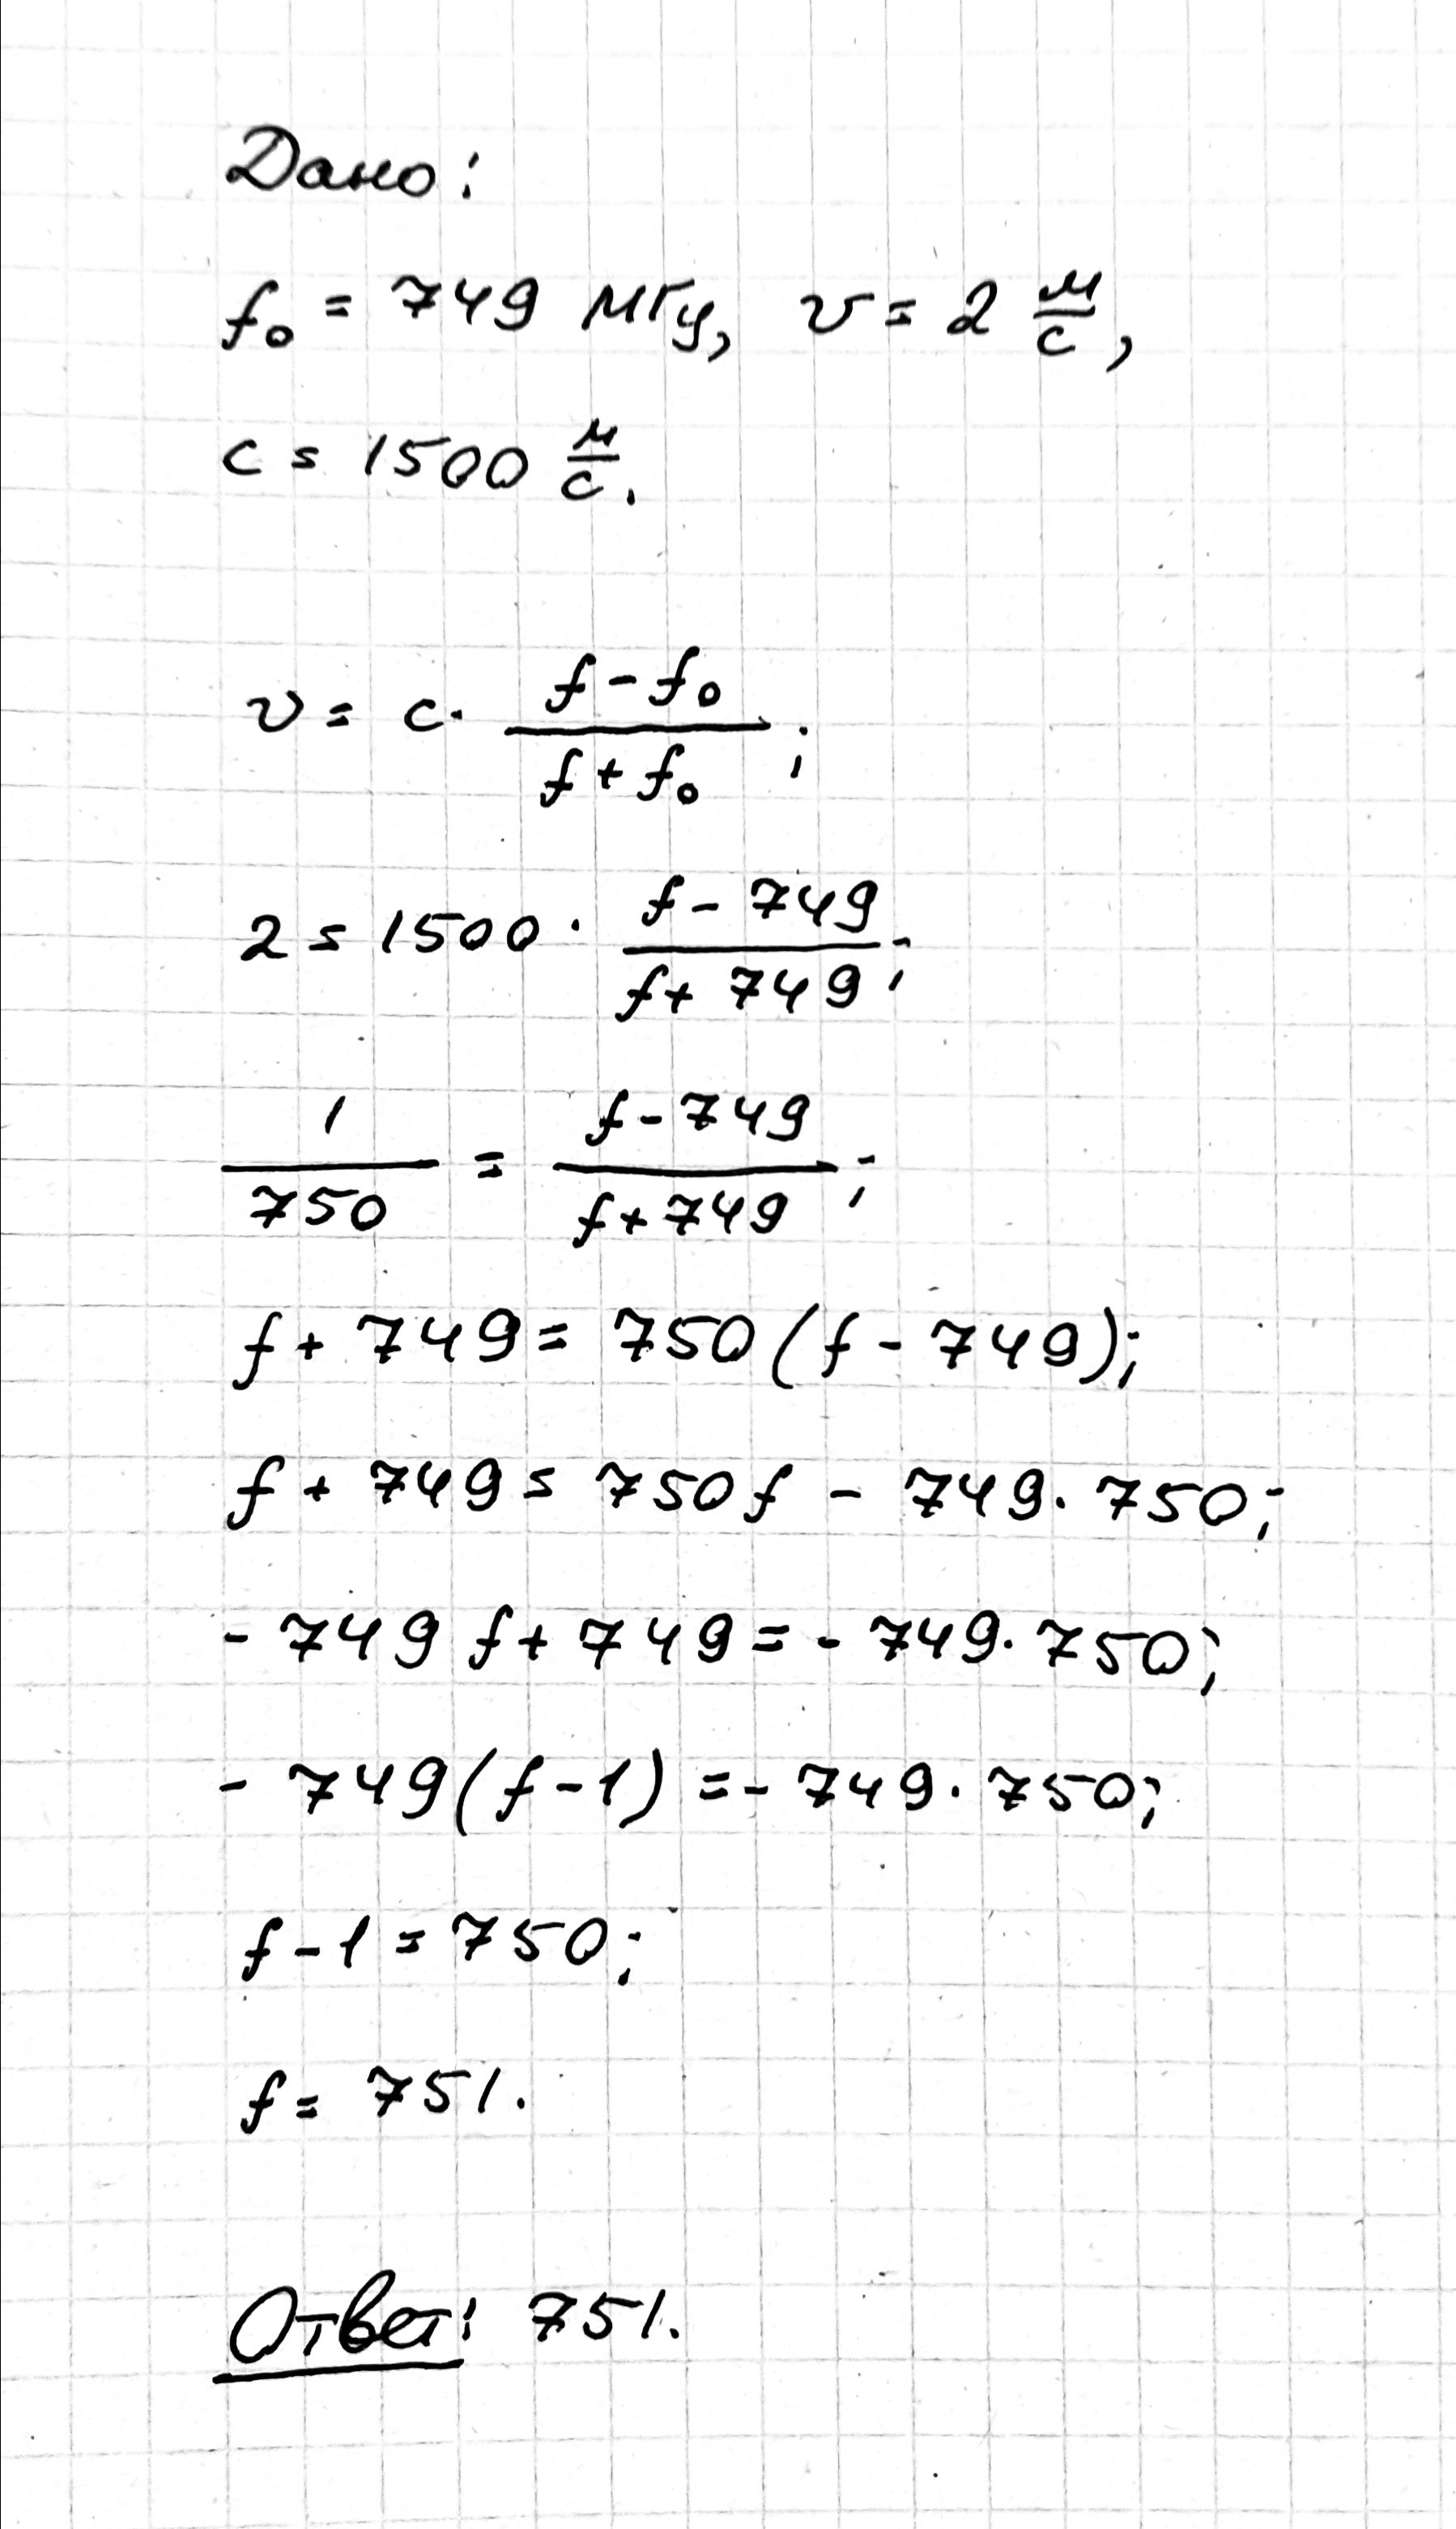 Дано:
f₀ = 749 МГц, v = 2 м/с,
c = 1500 м/с.
v = c · (f - f₀)/(f + f₀);
2 = 1500 · (f - 749)/(f + 749);
1/750 = (f - 749)/(f + 749);
f + 749 = 750(f - 749);
f + 749 = 750f - 749 · 750;
- 749f + 749 = - 749 · 750;
- 749(f - 1) = - 749 · 750;
f - 1 = 750;
f = 751.
Ответ: 751.